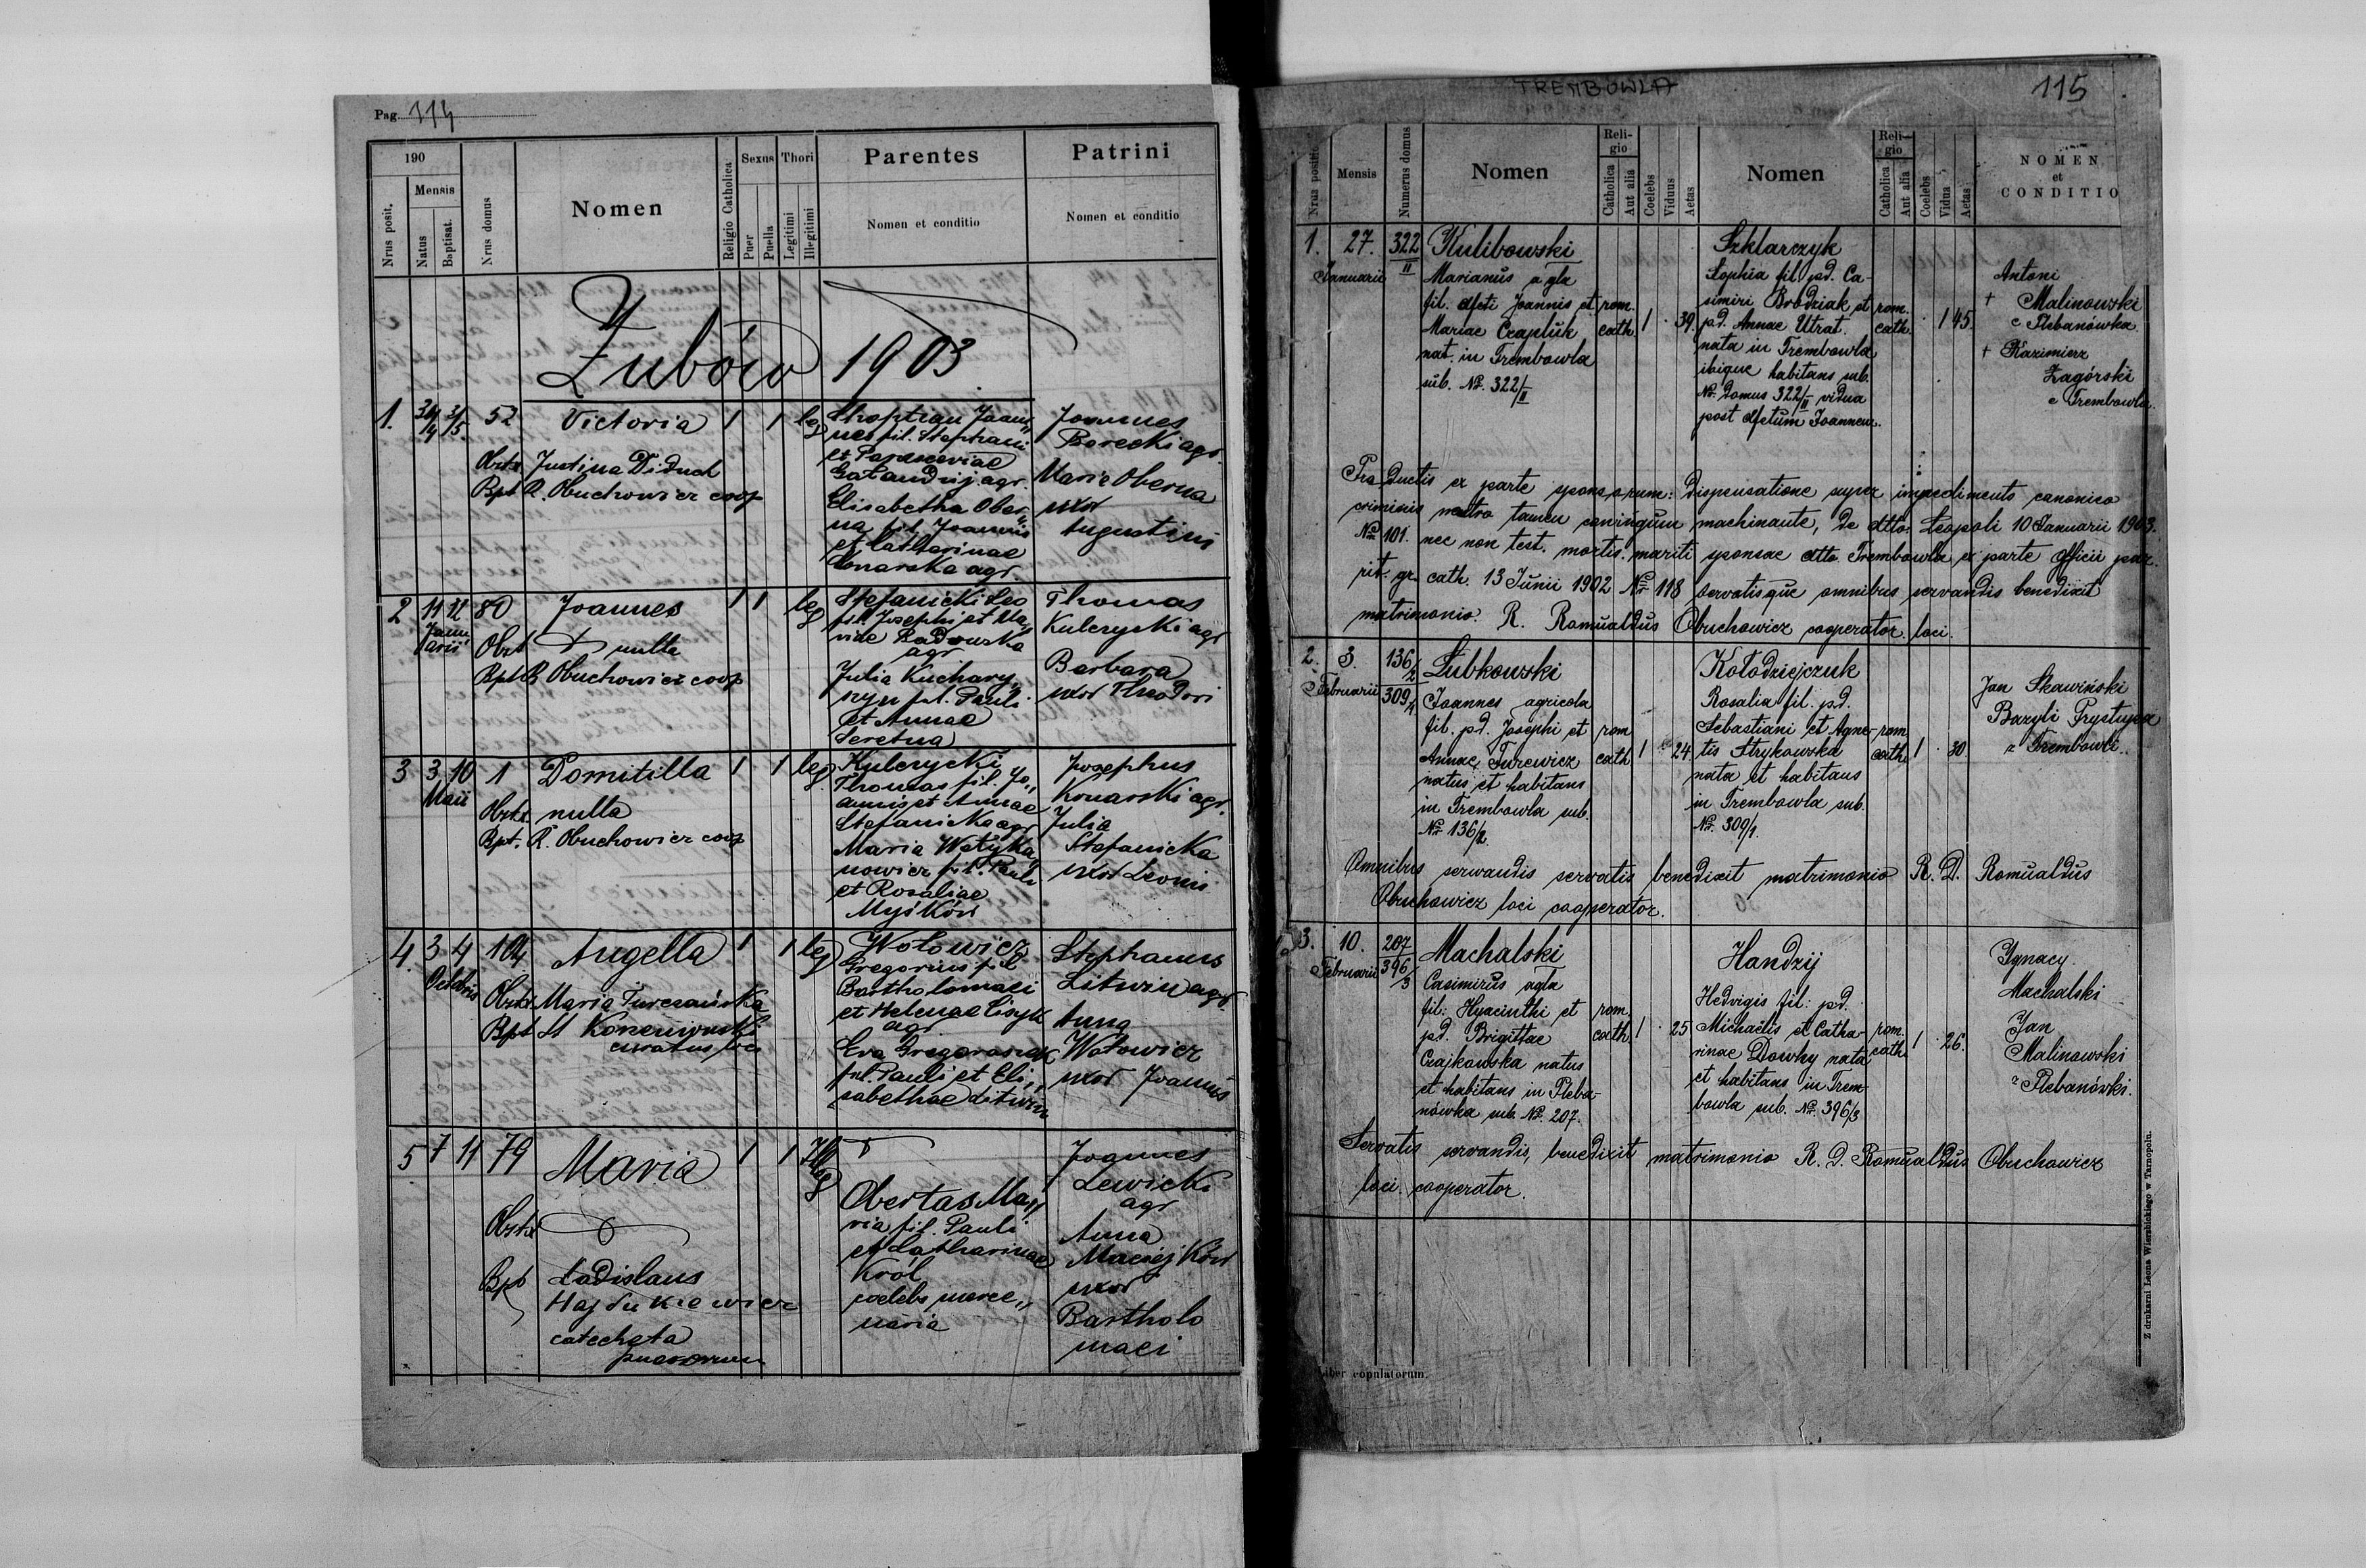 Pag. 114
190
Nrus posit.
Mensis
Natus
Baptisat.
Nrus domus
Nomen
Religio Catholica
Sexus
Puer
Puella
Thori
Legitimi
Illegitimi
Parentes
Nomen et conditio
Patrini
Nomen et conditio
Zubów 1903
1. 52 Victoria 1 1 leg
Obstx. Justina Diduch
Bpt R. Obuchowicz coop
Joan„
nes fil. Stephani
et Parasceviae
agr.
Elisabetha Ober„
na fil. Joannis
et Catharinae
Konarska agr.
Joannes
Borecki agr.
Maria Oberna
uxor
Augustini
2 11 12 80 Joannes 1 1 leg
Januarii
Obst nulla
Bpt R Obuchowicz coop
Stefanicki Leo
fil. Josephi et Ma„
riae Radowska
agr
Julia Kuchary„
szyn fil. Pauli
et Annae
Seretna
Thomas
Kulczycki agr
Barbara
uxor Theodori
3 3 10 1 Domitilla 1 1 leg.
Maii
Obstx. nulla
Bpt. R. Obuchowicz coop
Kulczycki
Thomas fil. Jo„
annis et Annae
Stefanicka agr
Maria Watyka„
nowicz fil. Pauli
et Rosaliae
Myśków
Josephus
Konarski agr.
Julia
Stefanicka
uxor Leonis
4. 3 4 104 Angella 1 1 leg
Octobris
Obstx Maria Turczańska
Bpt St
curatus loci
Wołowicz
Gregorius fil
Bartholomaei
et Helenae Cisyk
agr
Eva
fil. Pauli et Eli„
sabethae Litwin
Stephanus
Litwin agr.
Anna
Wołowicz
uxor Joannis
5 7 11 79 Maria 1 1 Illeg
Obstx
Bpt Ladislaus
Hajdukiewicz
catecheta
puerorum
Obertas Ma„
ria fil. Pauli
et Catharinae
Król
coelebs merce„
naria
Joannes
Lewicki
agr
Anna
Maciejków
uxor
Bartholo
maei
TREMBOWLA
115
Nrus positio
Mensis
Numerus domus
Nomen
Reli-
gio
Catholica
Aut alia
Coelebs
Viduus
Aetas
Nomen
Reli-
gio
Catholica
Aut alia
Coelebs
Vidua
Aetas
NOMEN
et
CONDITIO
1. 27. Januarii 322/II
Kulibowski
Marianus agla
fil. dfcti Joannis et
Mariae Czapluk
nat. in Trembowla
sub. No. 322/II
rom. cath. 1 39.
Szklarczyk
Sophia fil. pd. Ca-
simiri Brodziak et
pd. Annae Utrat.
nata in Trembowla
ibique habitans sub.
No. Domus 322/II vidua
post dfctum Joannem.
rom. cath. 1 45.
Antoni
+ Malinowski
e Plebanówka
+ Kazimierz
Zagórski
e Trembowla.
Pro ductis ex parte sponsorum: dispensatione super impedimento canonico
criminis neutro tamen coniugum machinante, de dtto. Leopoli 10 Januarii 1903.
No 101. nec non test. mortis mariti sponsae dtto Trembowla ex parte Officii par.
rit. gr. cath. 13 Junii 1902 No 118 servatisque omnibus servandis benedixit
matrimonio. R. Romualdus Obuchowicz cooperator loci.
2. 3. Februarii 136/2 309/4
Łubkowski
Joannes agricola
fil. pd. Josephi et
Annae Turewicz
natus et habitans
in Trembowla sub.
No 136/2.
rom cath 1 24.
Kołodziejczuk
Rosalia fil. pd.
Sebastiani et Agne-
tis Strykowska
nata et habitans
in Trembowla sub.
No. 309/1.
rom cath. 1 30.
Jan Skawiński
Bazyli Prystupa
z Trembowli.
Omnibus servandis servatis benedixit matrimonio R. D. Romualdus
Obuchowicz loci cooperator.
3. 10. Februarii 207 396/3
Machalski
Casimirus agla
fil: Hyacinthi et
pd. Brigittae
Czajkowska natus
et habitans in Pleba-
nówka sub. No. 207.
rom. cath. 1 25
Handzij
Hedvigis fil: pd.
Michaelis et Catha-
rinae Dowhy nata
et habitans in Trem-
bowla sub. No. 396/3
rom. cath. 1 26.
Ygnacy
Machalski
Jan
Malinowski
z Plebanówki.
Servatis servandis, benedixit matrimonio R. D. Romualdus Obuchowicz
loci cooperator.
Liber copulatorum.
Z drukarni Leona Wierzbickiego w Tarnopolu.